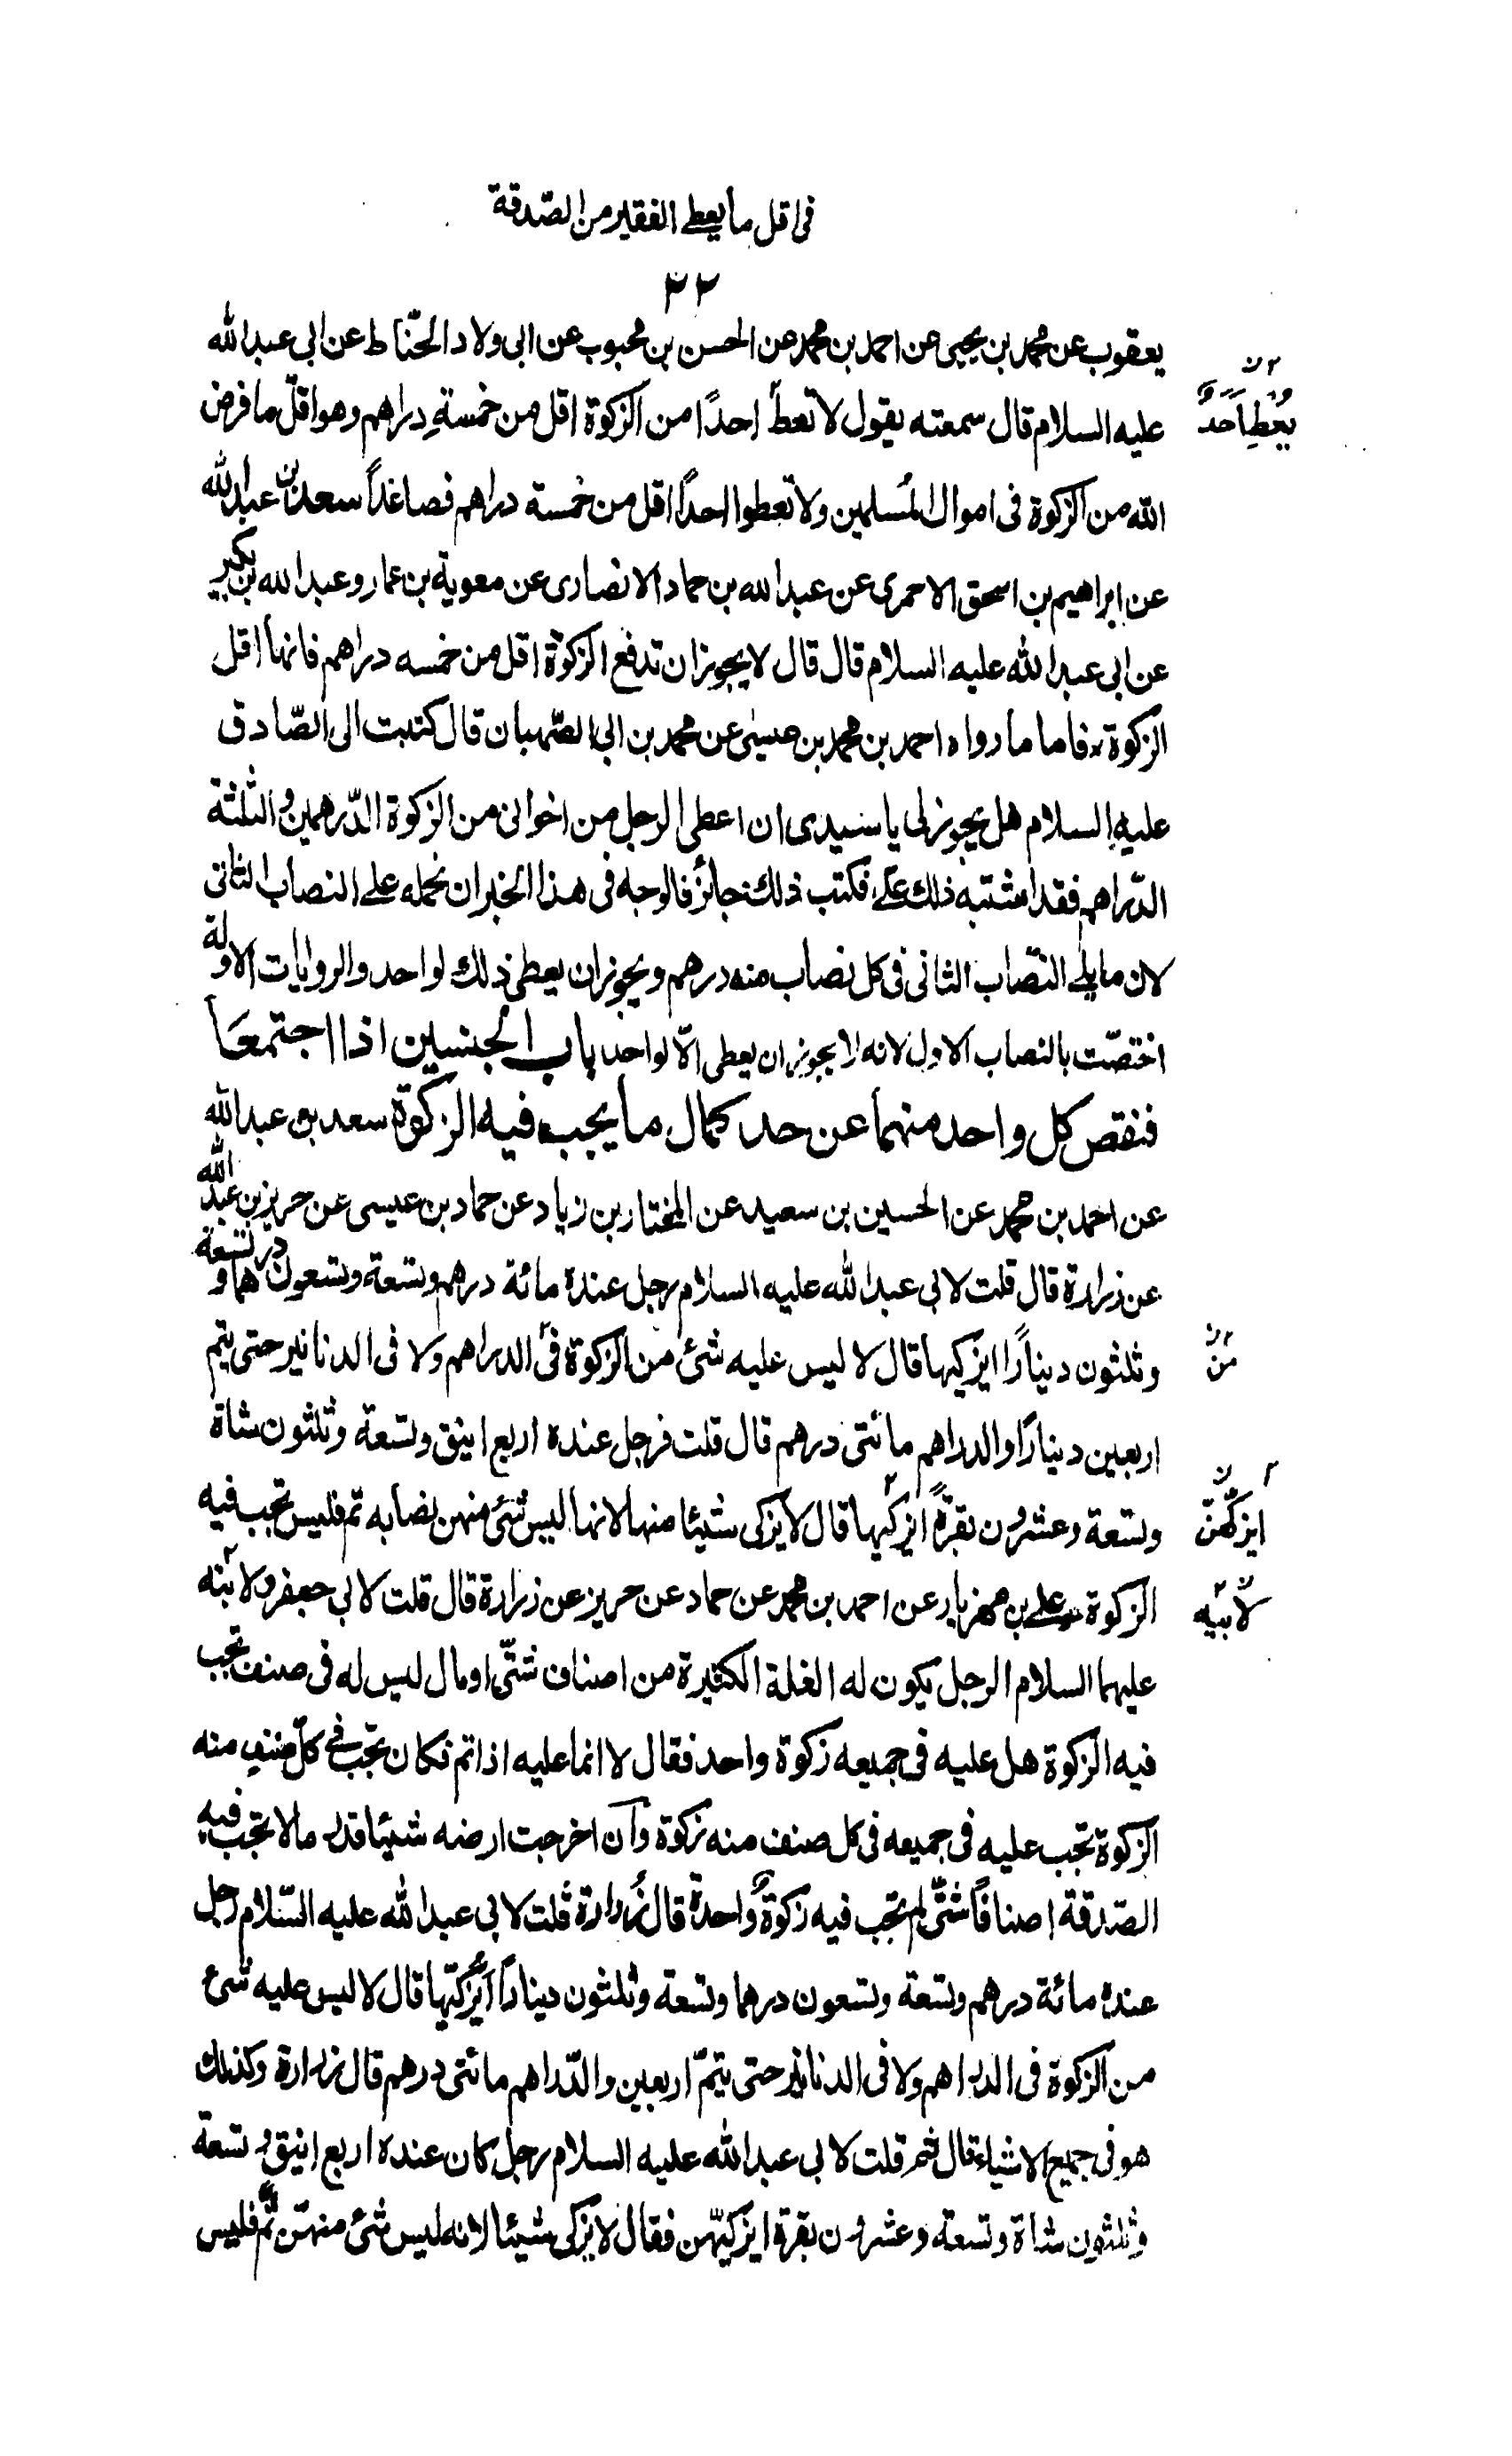 فى اقل ما يعطى الفقير من الصّدقة
٢٢
يعقوب عن محمد بن يحيى عن احمد بن محمد عن الحسن بن محبوب عن ابى ولاد الحنّاط عن ابى عبد الله
عليه السلام قال سمعته يقول لا تعط احدًا من الزكوة اقل من خمسة دراهم وهو اقلّ ما فرض
يُعْطِ اَحَدٌ
الله من الزكوة فى اموال المسلمين ولا تعطوا احدًا اقل من خمسة دراهم فصاعداً سعد بن عبد الله
عن ابراهيم بن اسحق الاحمرى عن عبد الله بن حماد الانصارى عن معوية بن عمار وعبد الله بن بكير
عن ابى عبد الله عليه السلام قال قال لا يجوز ان تدفع الزكوة اقل من خمسه دراهم فانها اقل
الزكوة فاما ما رواه احمد بن محمد بن عيسى عن محمد بن ابى الصّهبان قال كتبت الى الصّادق
عليه السلام هل يجوز لى يا سيدى ان اعطى الرجل من اخوانى من الزكوة الدّرهمين والثلثة
الدّراهم فقد اشتبه ذلك علىّ فكتب ذلك جائز فالوجه فى هذا الخبر ان نحمله على النصاب الثانى
لان ما يلى النصّاب الثانى فى كل نصاب منه درهم ويجوز ان يعطى ذلك لواحد والروايات الاولة
اختصّت بالنصاب الاول لانه لا يجوز ان يعطى الّا لواحد باب الجنسين اذا اجتمعا
فنقص كل واحد منهما عن حد كمال ما يجب فيه الزكوة سعد بن عبد الله
عن احمد بن محمد عن الحسين بن سعيد عن المختار بن زياد عن حماد بن عيسى عن حريز بن عبد الله
عن زرارة قال قلت لابى عبد الله عليه السلام رجل عنده مائة درهم وتسعة وتسعون درهما وتسعة
وثلثون دينارًا ايزكيها قال لا ليس عليه شئ من الزكوة فى الدراهم ولا فى الدنانير حتى يتم
من
اربعين دينارًا والدراهم مائتى درهم قال قلت فرجل عنده اربع اينق وتسعة وثلثون شاة
وتسعة وعشرون بقرةً ايزكيها قال لا يزكى شيئا منها لانها ليس شئ منهن نصابه تم فليس تجب فيه
ايزكّهنّ
الزكوة على بن مهزيار عن احمد بن محمد عن حماد عن حريز عن زرارة قال قلت لابى جعفر ولابنه
لابيه
عليهما السلام الرجل يكون له الغلة الكثيرة من اصناف شتّى او مال ليس له فى صنف تجب
فيه الزكوة هل عليه فى جميعه زكوة واحد فقال لا انما عليه اذا تم فكان تجب فى كلّ صنف منه
الزكوة تجب عليه فى جميعه فى كل صنف منه زكوة وان اخرجت ارضه شيئا قدر ما لا تجب فيه
الصّدقة اصنافًا شتّى لم تجب فيه زكوة واحدة قال زرارة قلت لابى عبد الله عليه السّلام رجل
عنده مائة درهم وتسعة وتسعون درهما وتسعة وثلثون ديناراً ايزكيّها قال لا ليس عليه شئ
من الزكوة فى الدراهم ولا فى الدنانير حتى يتمّ اربعين والدّراهم مائتى درهم قال زرارة وكذلك
هو فى جميع الاشياء قال ثم قلت لابى عبد الله عليه السلام رجل كان عنده اربع اينق وتسعة
وثلثون شاة وتسعة وعشرون بقرة ايزكيّهن فقال لا يزكى شيئا لانه ليس شئ منهنّ تمّ فليس